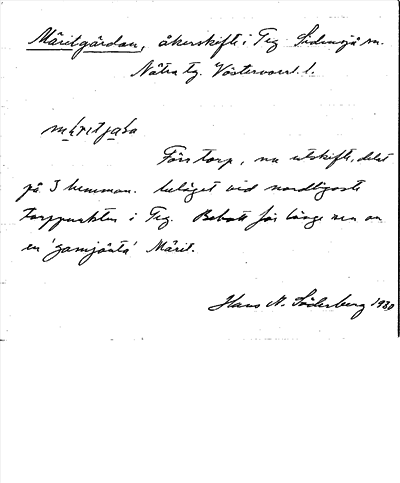 Märitgårdan, åkerskifte i Teg Sidensjö sn.
Nätra tg. Västernorrl. l.
märitjaḷa
Förr torp, nu utskifte, delat
på 3 hemman. beläget vid nordligaste
torppunkten i Teg. Bebott för länge sen av
en 'gamjänta' Märit.
Hans N. Söderberg 1930